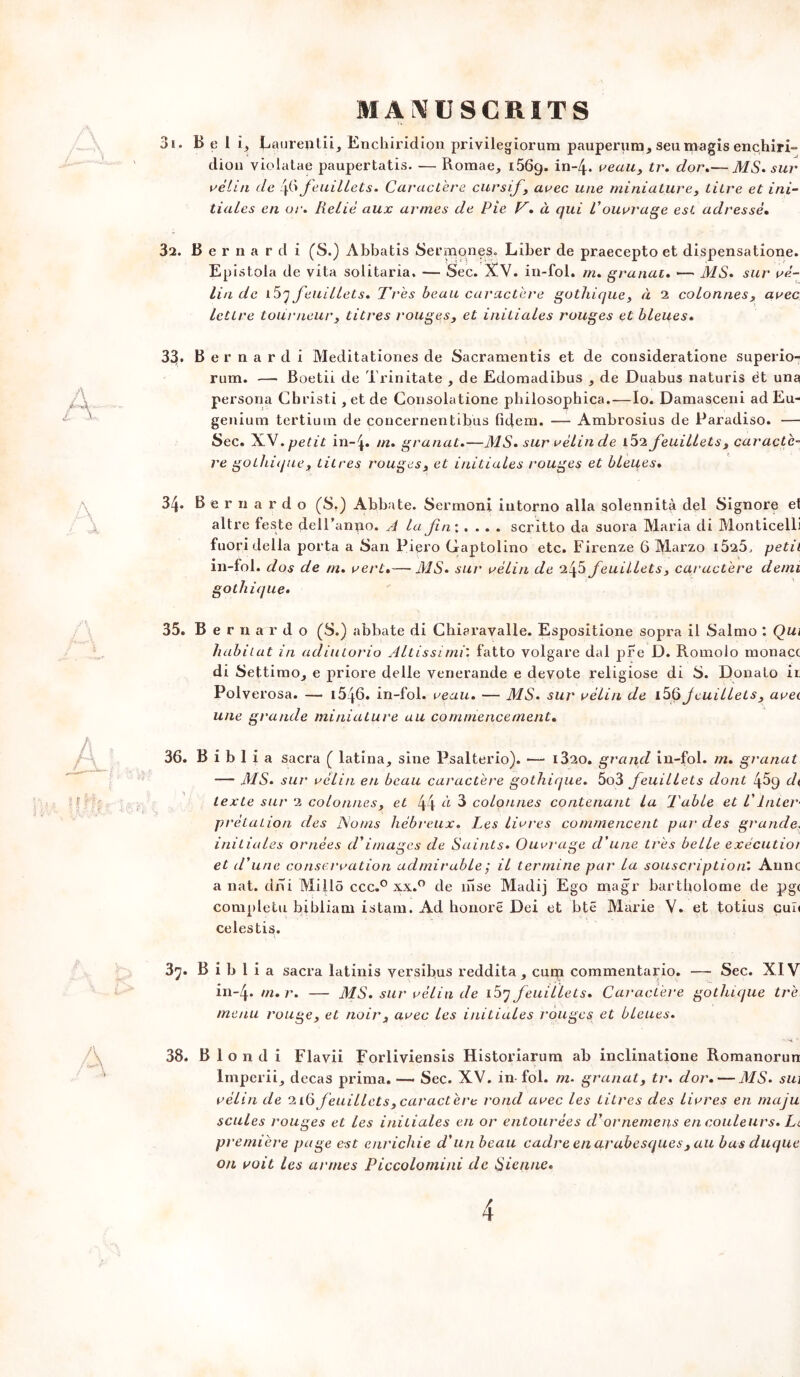 MANUSCRITS
31. Beli, Laurentii, Enchiridion privilegiorum pauperum, seu magis enchiri-
dion violatae paupertatis. — Romae, 1569. in-4. veau, tr. dor.— MS. sur
vélin de 46 feuillets. Caractère cursif, avec une miniature, titre et ini-
tiales en or. Relié aux armes de Pie V. à qui l'ouvrage est adressé.
32. Bernardi (S.) Abbatis Sermones. Liber de praecepto et dispensatione.
Epistola de vita solitaria. — Sec. XV. in-fol. m. granat. — MS. sur vé-
lin de 157 feuillets. Très beau caractère gothique, à 2 colonnes, avec
lettre tourneur, titres rouges, et initiales rouges et bleues.
33. Bernardi Meditationes de Sacramentis et de consideratione superio-
rum. — Boetii de Trinitate , de Edomadibus , de Duabus naturis et una
persona Christi , et de Consolatione philosophica.—Io. Damasceni ad Eu-
genium tertium de concernentibus fidem. — Ambrosius de Paradiso. —
Sec. XV. petit in-4. m. granat.—MS. sur vélin de 152 feuillets, caractè-
re gothique, titres rouges, et initiales rouges et bleues.
34. Bernardo (S.) Abbate. Sermoni intorno alla solennità del Signore et
altre feste dell'anno. A la fin: . . . . scritto da suora Maria di Monticelli
fuori della porta a San Piero Gaptolino etc. Firenze 6 Marzo 1525, petit
in-fol. dos de m. vert.— MS. sur vélin de 245 feuillets, caractère demi
gothique.
35. Bernardo (S.) abbate di Chiaravalle. Espositione sopra il Salmo : Qui
habitat in adiutorio Altissimi: fatto volgare dal pre D. Romolo monac
di Settimo, e priore delle venerande e devote religiose di S. Donato i
Polverosa. — 1546. in-fol. veau. — MS. sur vélin de 156 feuillets, avec
une grande miniature au commencement.
36. Biblia sacra ( latina, sine Psalterio). — 1320. grand in-fol. m. granat
— MS. sur vélin en beau caractère gothique. 503 feuillets dont 459 d
texte sur 2 colonnes, et 44 à 3 colonnes contenant la Table et l'Inter-
prétation des Noms hébreux. Les livres commencent par des grande
initiales ornées d'images de Saints. Ouvrage d'une très belle exécution
et d'une conservation admirable; il termine par la souscription: Anno
a nat. dñi Millō ccc.º xx.º de mse Madij Ego magr bartholome de pg
completu bibliam istam. Ad honorē Dei et btē Marie V. et totius cui
celestis.
37. Biblia sacra latinis versibus reddita , cum commentario. — Sec. XIV
in-4. m. r. — MS. sur vélin de 157 feuillets. Caractère gothique trè
menu rouge, et noir, avec les initiales rouges et bleues.
38. Blondi Flavii Forliviensis Historiarum ab inclinatione Romanorum
Imperii, decas prima. — Sec. XV. in-fol. m. granat, tr. dor. — MS. sur
vélin de 216 feuillets, caractère rond avec les titres des livres en maju
scules rouges et les initiales en or entourées d'ornemens en couleurs. L
première page est enrichie d'un beau cadre en arabesques, au bas duque
on voit les armes Piccolomini de Sienne.
4